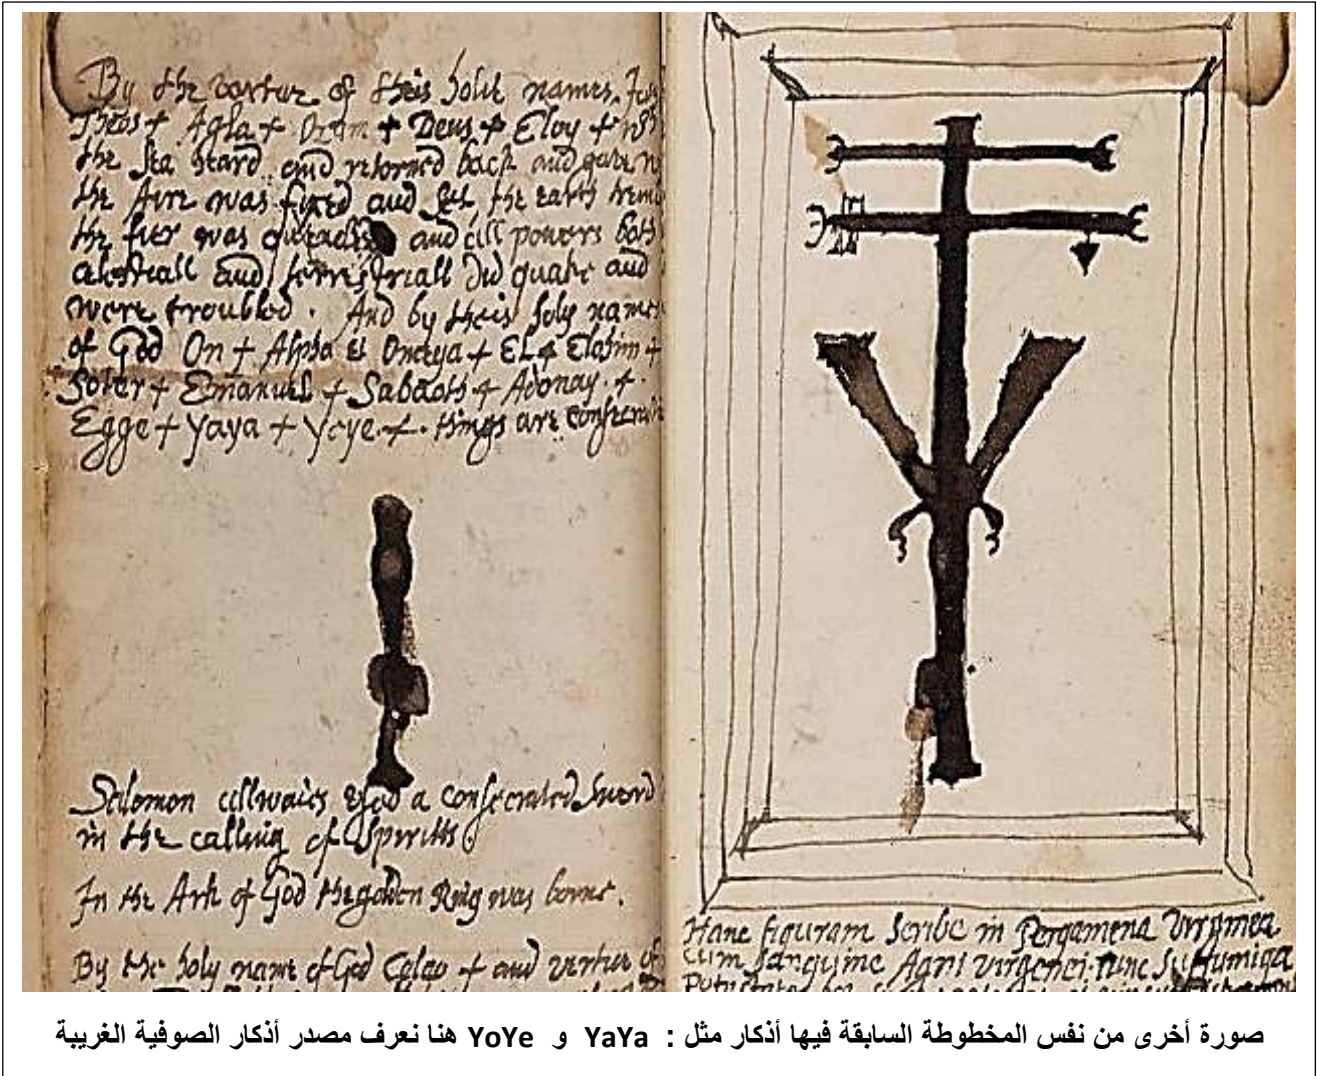 By the vertue of theis holie names. Jes
Theos + Agla + + Deus + Eloy +
the sea heard and retorned back and gave
the Aire was fixed and the earth
the fier was and all powers both
celestiall and terrestriall did quake and
were troubled. And by theis holy names
of God On + Alpha et Omega + EL + Elohim +
Soter + Emanuel + Sabaoth + Adonay. +
Egge + Yaya + Yeye. +. things are
Solomon allwaies used a consecrated sword
in the calling of spiritts
In the Ark of God the golden Ring was borne.
By the holy name of God + and vertue of
Hanc figuram scribe in Pergamena
cum sanguine Agni virgenei. tunc suffumiga
صورة أخرى من نفس المخطوطة السابقة فيها أذكار مثل : YaYa و YoYe هنا نعرف مصدر أذكار الصوفية الغريبة